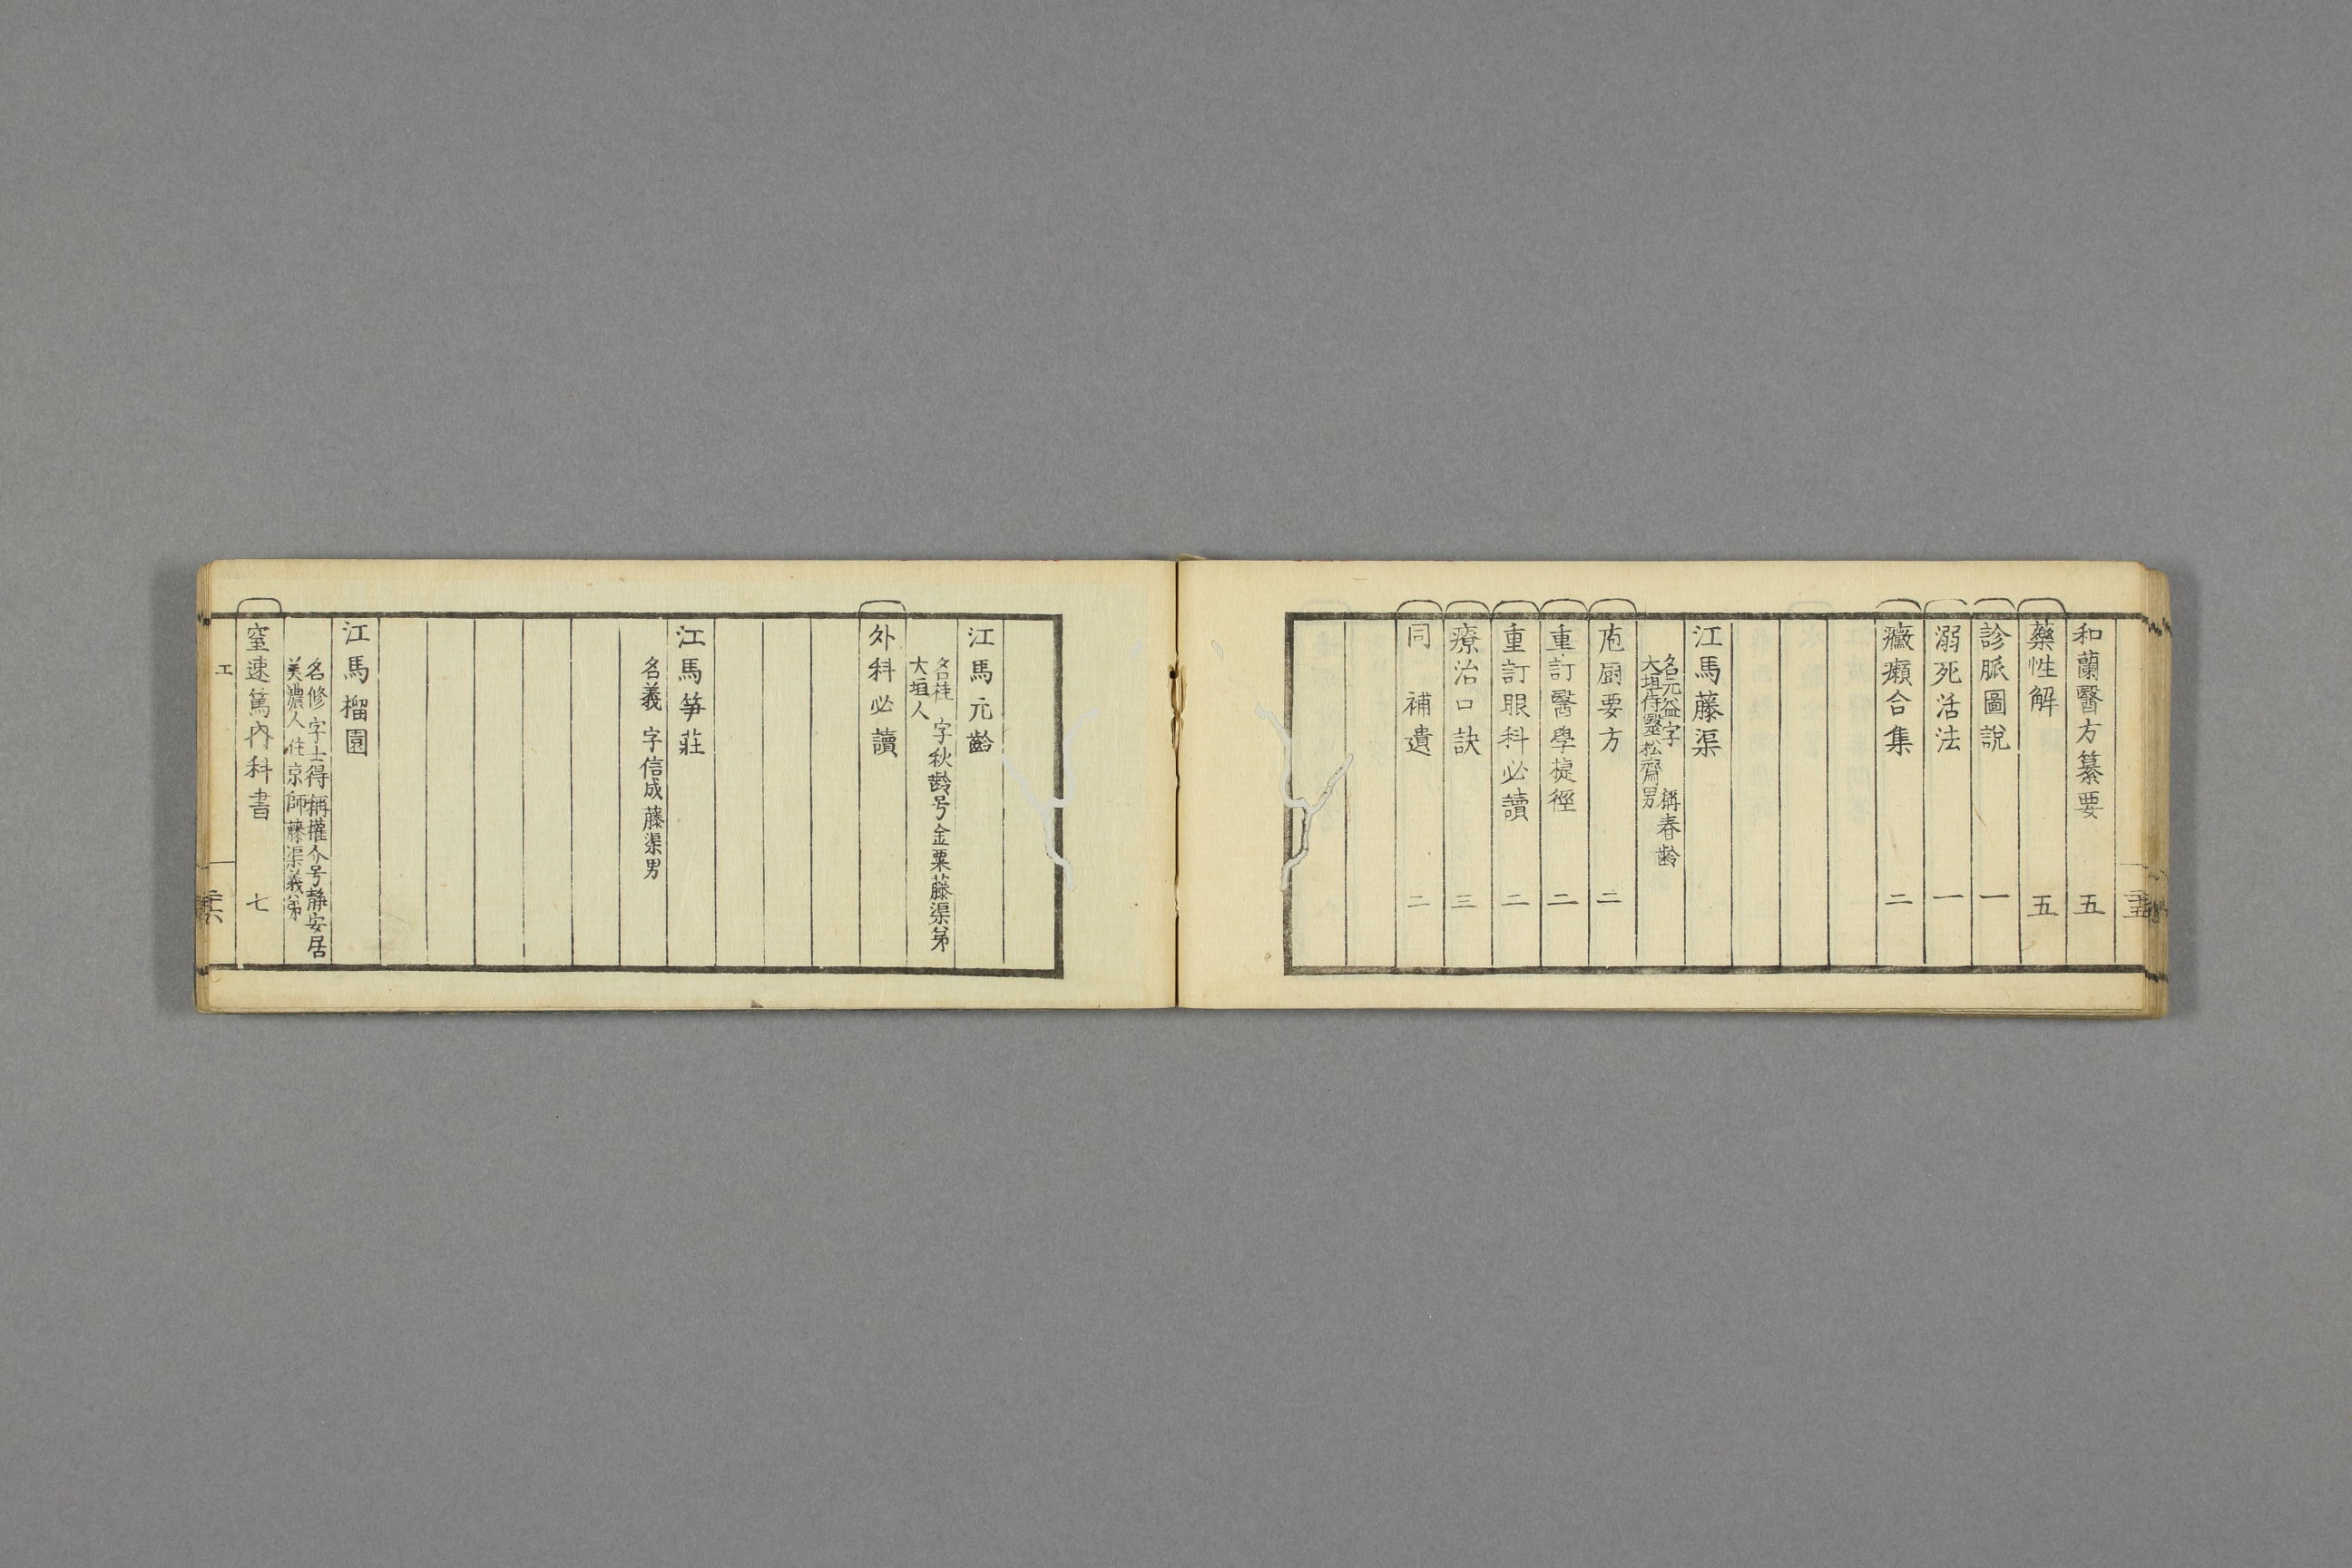 和蘭醫方纂要 五
藥性解 五
診脈圖說 一
溺死活法 一
癥癩合集 二
江馬藤渠
名元益字 稱春齡
大垣侍醫松齋男
庖厨要方 二
重訂醫學捷徑 二
重訂眼科必讀 二
療治口訣 三
同 補遺 二
江馬元齡
名桂 字秋齡号金粟藤渠弟
大垣人
外科必讀
江馬筍莊
名義 字信成藤渠男
江馬榴園
名修 字士得稱權介号靜安居
美濃人住京師藤渠義弟
窒速篤內科書 七
エ